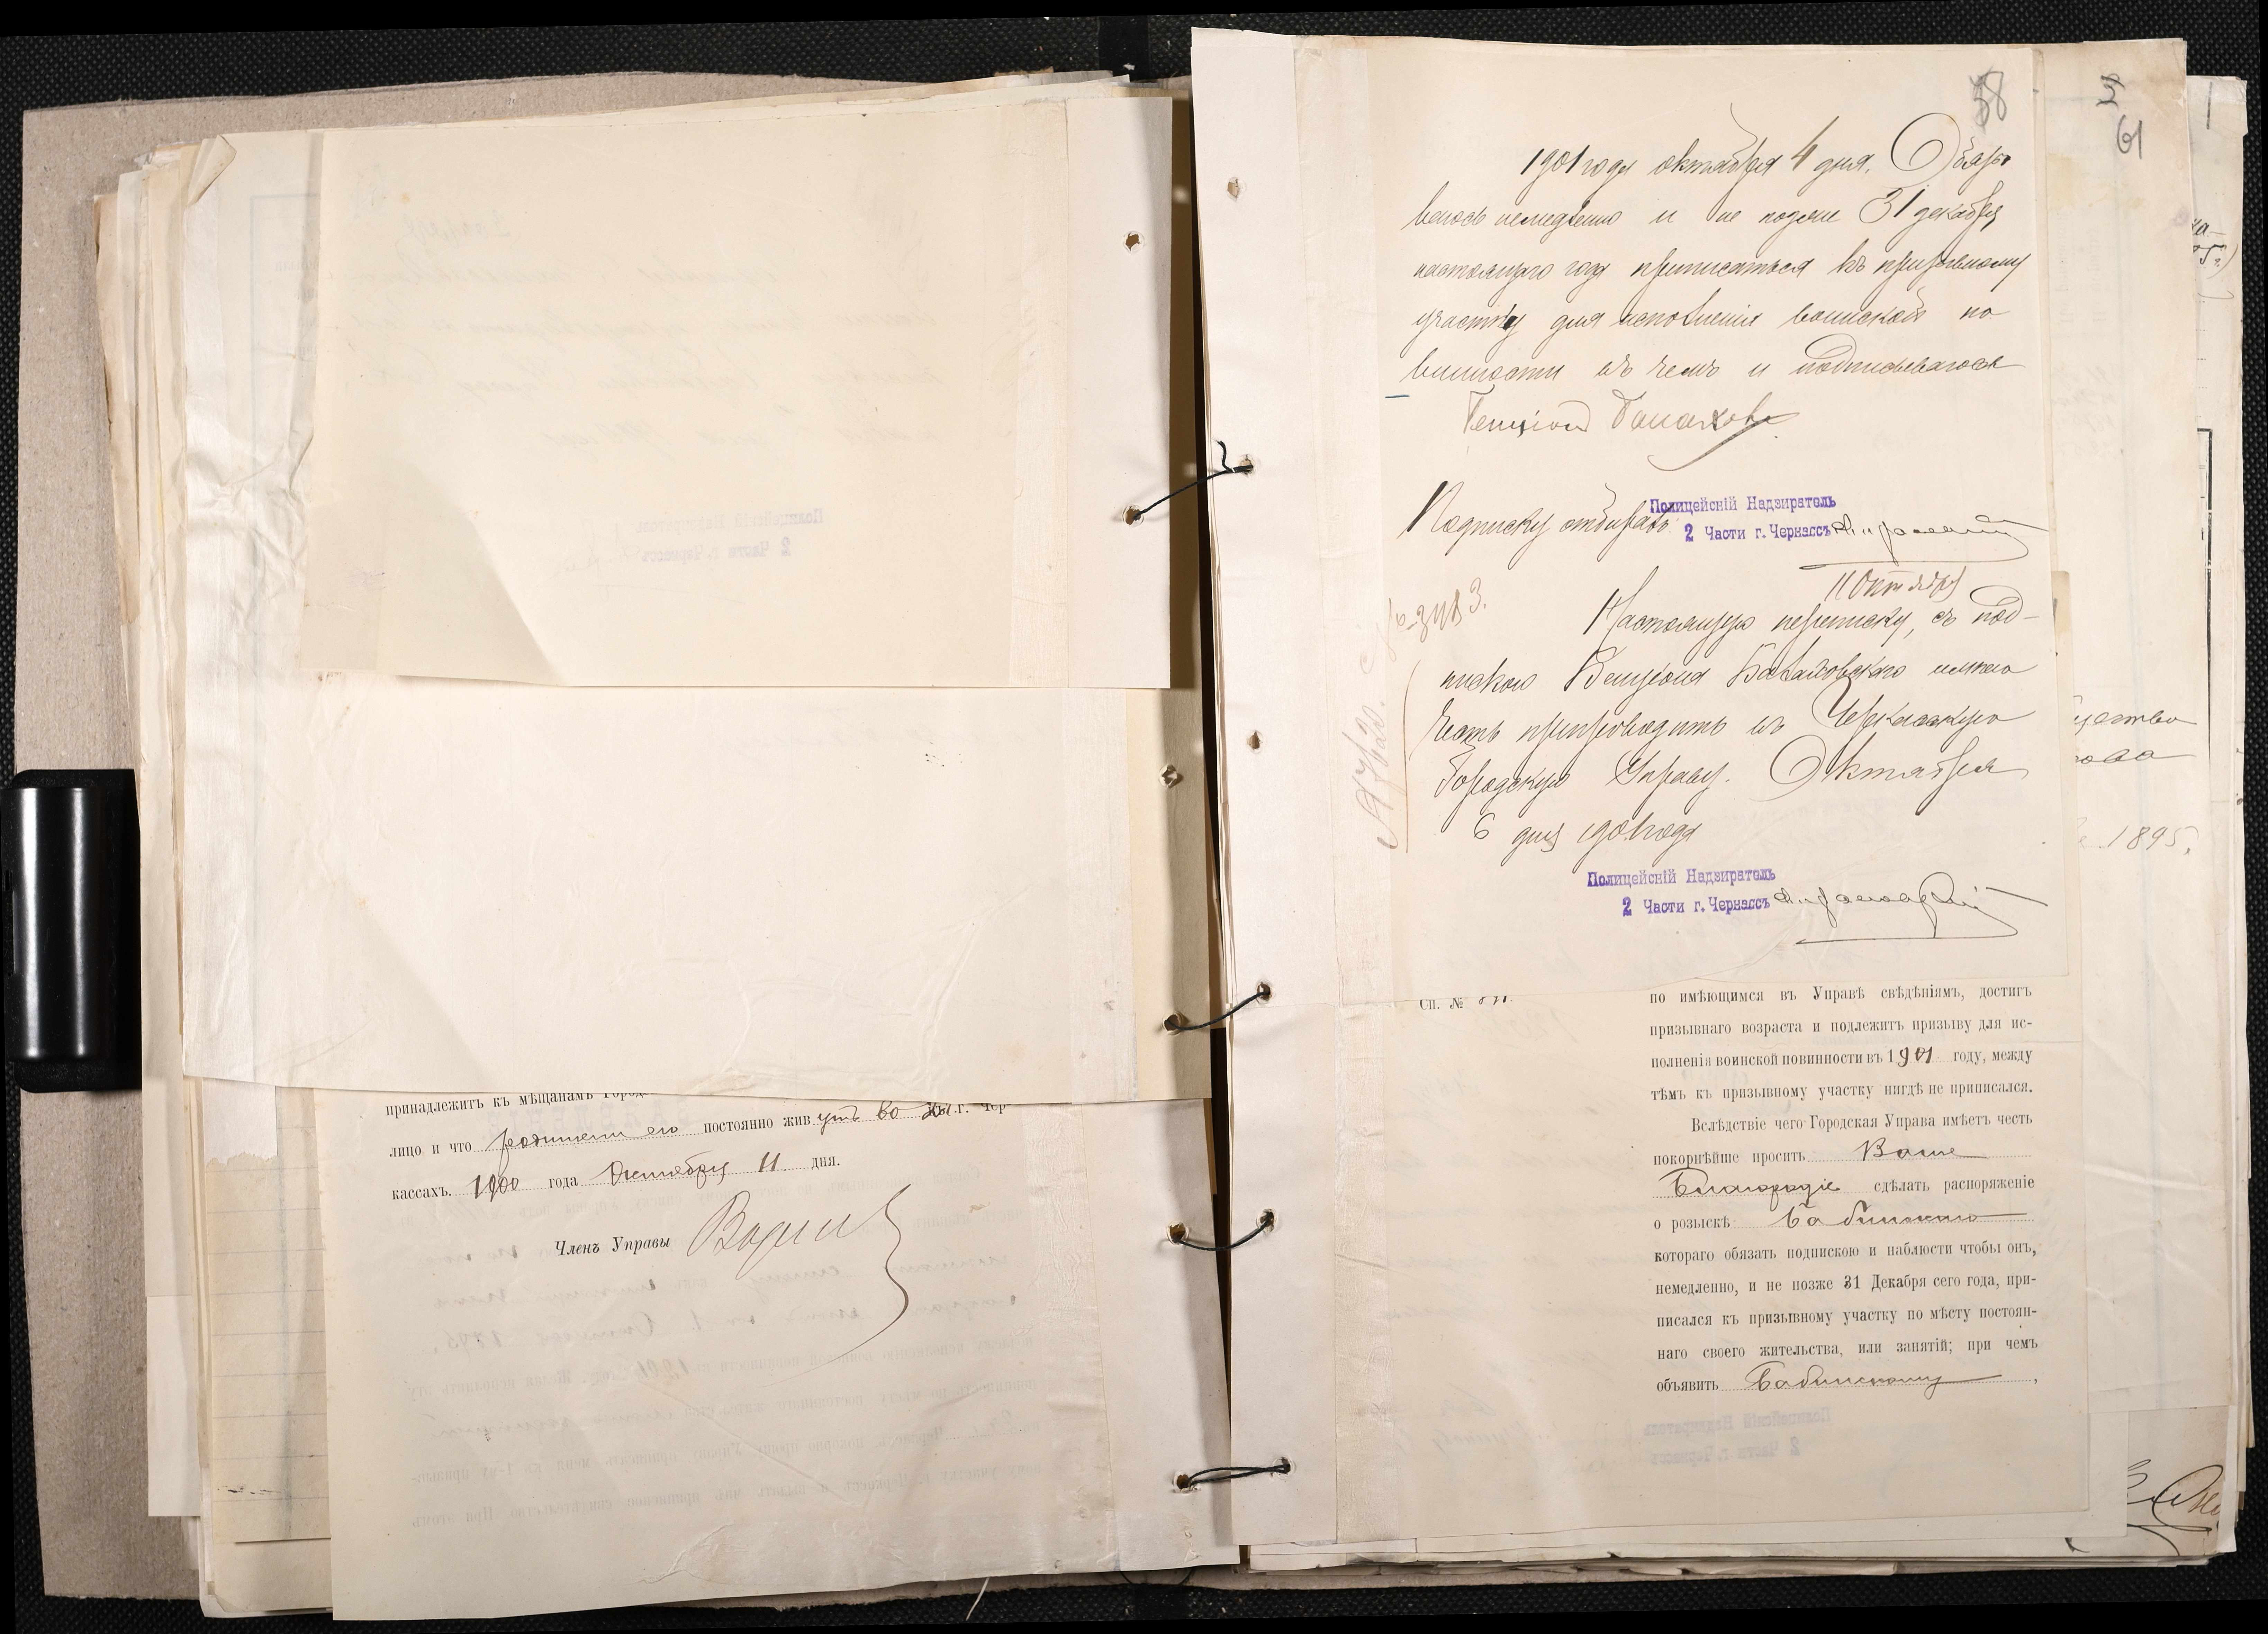 принадлежитъ къ мѣщанамъ
лицо и что родители его постоянно живутъ во 2й ч. г. Чер-
кассахъ. 1900 года Октября 11 дня.
Членъ Управы
58
61
1901 года октября 4 дня. Обязы
ваюсь немедленно и не позже 31 декабря
настоящаго года приписаться къ призывному
участку для исполненія воинской по
винности въ чемъ и подписываюсь
Подписку отбиралъ
Полицейскій Надзиратель
2 Части г. Черкассъ
11 Октября
Настоящую переписку, съ под-
пискою имѣю
честь препроводить въ Черкасскую
Городскую Управу. Октября
6 дня 1901 года
Полицейскій Надзиратель
2 Части г. Черкассъ
Сп. №
по имѣющимся въ Управѣ свѣдѣніямъ, достигъ
призывнаго возраста и подлежитъ призыву для ис-
полненія воинской повинности въ 1901 году, между
тѣмъ къ призывному участку нигдѣ не приписался.
Вслѣдствіе чего Городская Управа имѣетъ честь
покорнѣйше просить Ваше
Благородіе сдѣлать распоряженіе
о розыскѣ Бабинскаго
котораго обязать подпискою и наблюсти чтобы онъ,
немедленно, и не позже 31 Декабря сего года, при-
писался къ призывному участку по мѣсту постоян-
наго своего жительства, или занятій; при чемъ
объявить Бабинскому,
1895.